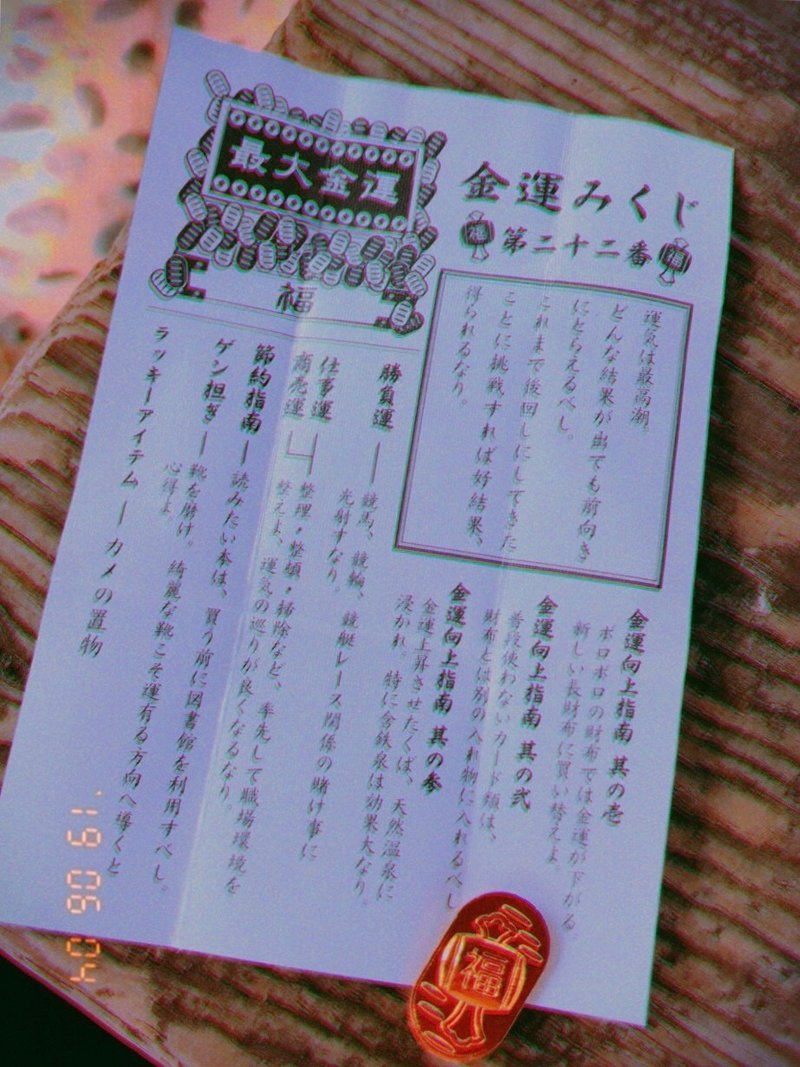 金運みくじ
第二十二番
運気は最高潮。
どんな結果が出ても前向き
にとらえるべし。
これまで後回しにしてきた
ことに挑戦すれば好結果、
得られるなり。
金運向上指南 其の壱
ボロボロの財布では金運が下がる。
新しい長財布に買い替えよ。
金運向上指南 其の弐
普段使わないカード類は、
財布とは別の入れ物に入れるべし
金運向上指南 其の参
金運上昇させたくば、天然温泉に
浸かれ。特に含鉄泉は効果大なり。
最大金運
福
勝負運
競馬、競輪、競艇レース関係の賭け事に
光射すなり。
仕事運
商売運
整理・整頓・掃除など、率先して職場環境を
整えよ、運気の巡りが良くなるなり。
節約指南
読みたい本は、買う前に図書館を利用すべし。
ゲン担ぎ
靴を磨け。綺麗な靴こそ運有る方向へ導くと
心得よ。
ラッキーアイテム
カメの置物
福
'19 06 04